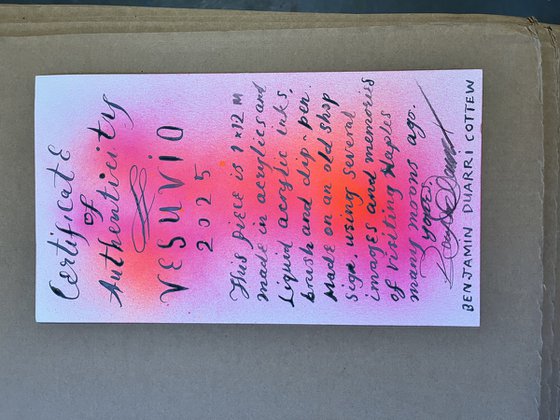 Certificate
of
Authenticity
VESUVIO
2025
This piece is 1x1.2 M
made in acrylics and
Liquid acrylic inks,
brush and dip-pen.
Made on an old shop
sign. using several
images and memories
of visiting Naples
many moons ago.
yours,
BENJAMIN DUARRI COTTEW